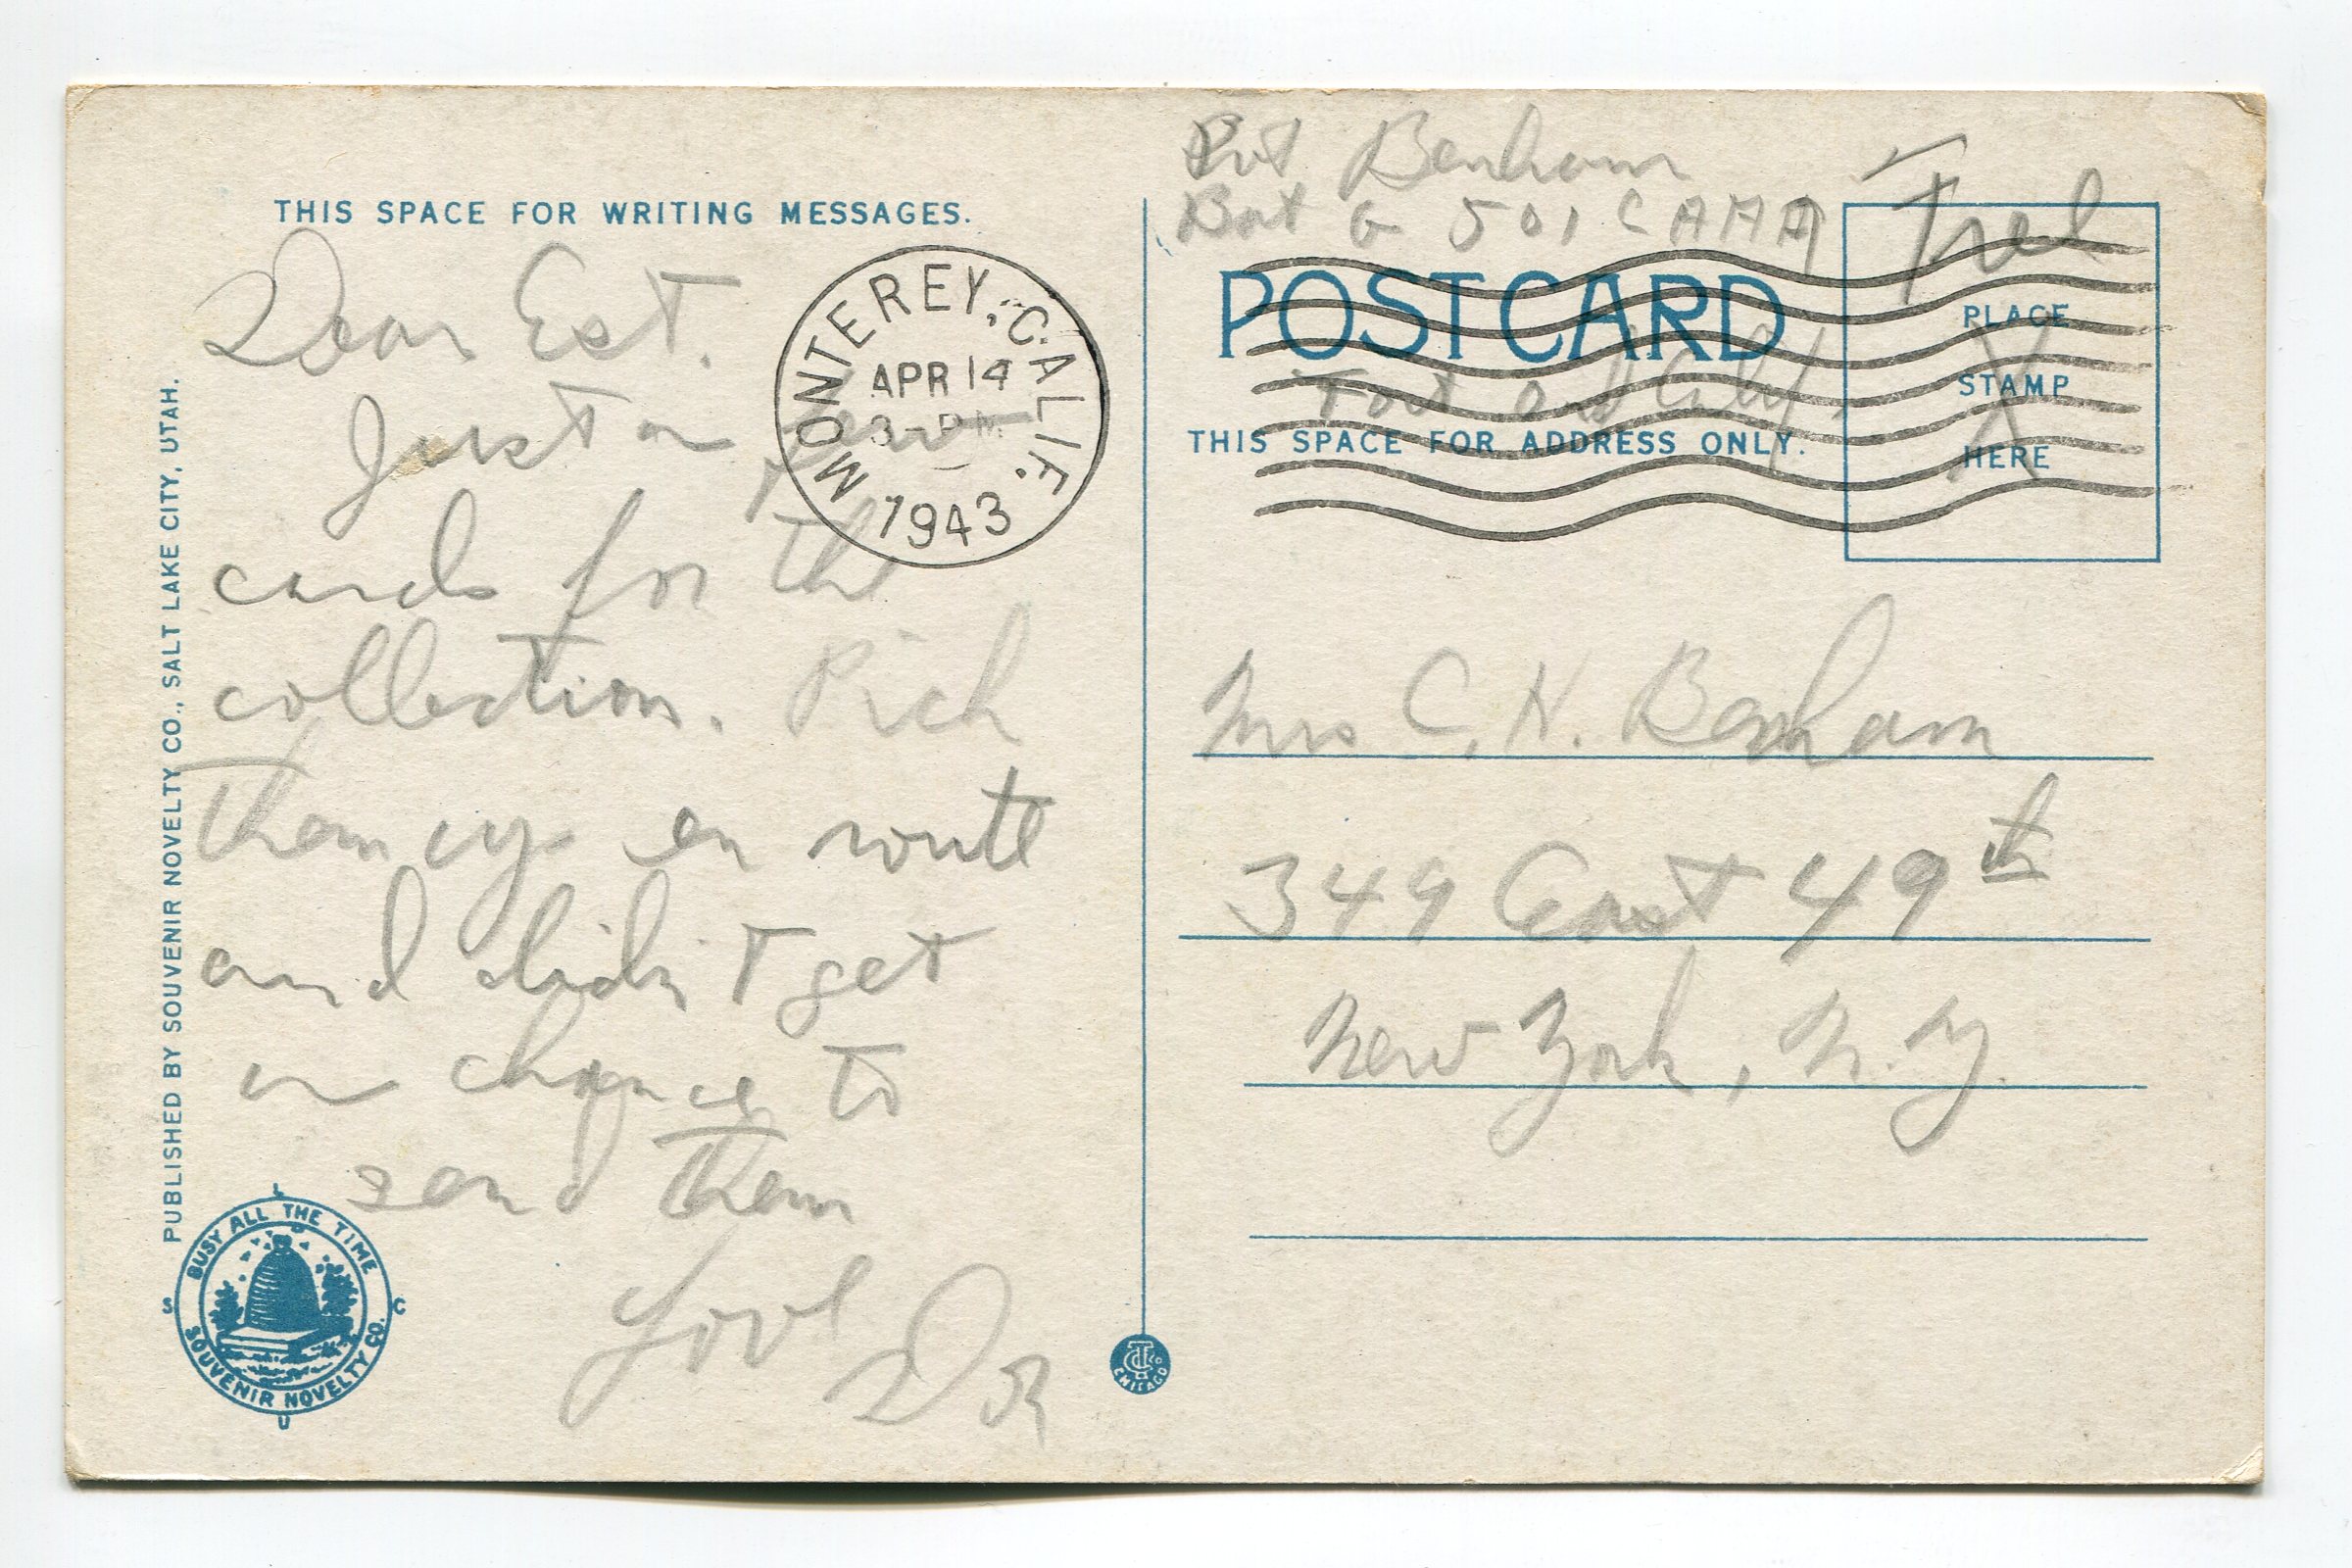 THIS SPACE FOR WRITING MESSAGES.
Dear Est.
Just a few
cards for the
collection. Pich
them up en route
and didn't get
a chance to
send them
Love
PUBLISHED BY SOUVENIR NOVELTY CO., SALT LAKE CITY, UTAH.
BUSY ALL THE TIME
SOUVENIR NOVELTY CO.
S L C U
MONTEREY, CALIF.
APR 14
3 - PM
1943
CHICAGO
Pvt Benham
Bat G 501 CAAA
Free
POST CARD
Fort Ord Calif.
THIS SPACE FOR ADDRESS ONLY.
PLACE
STAMP
HERE
Mrs C. H. Benham
349 East 49th
New York, N.Y.